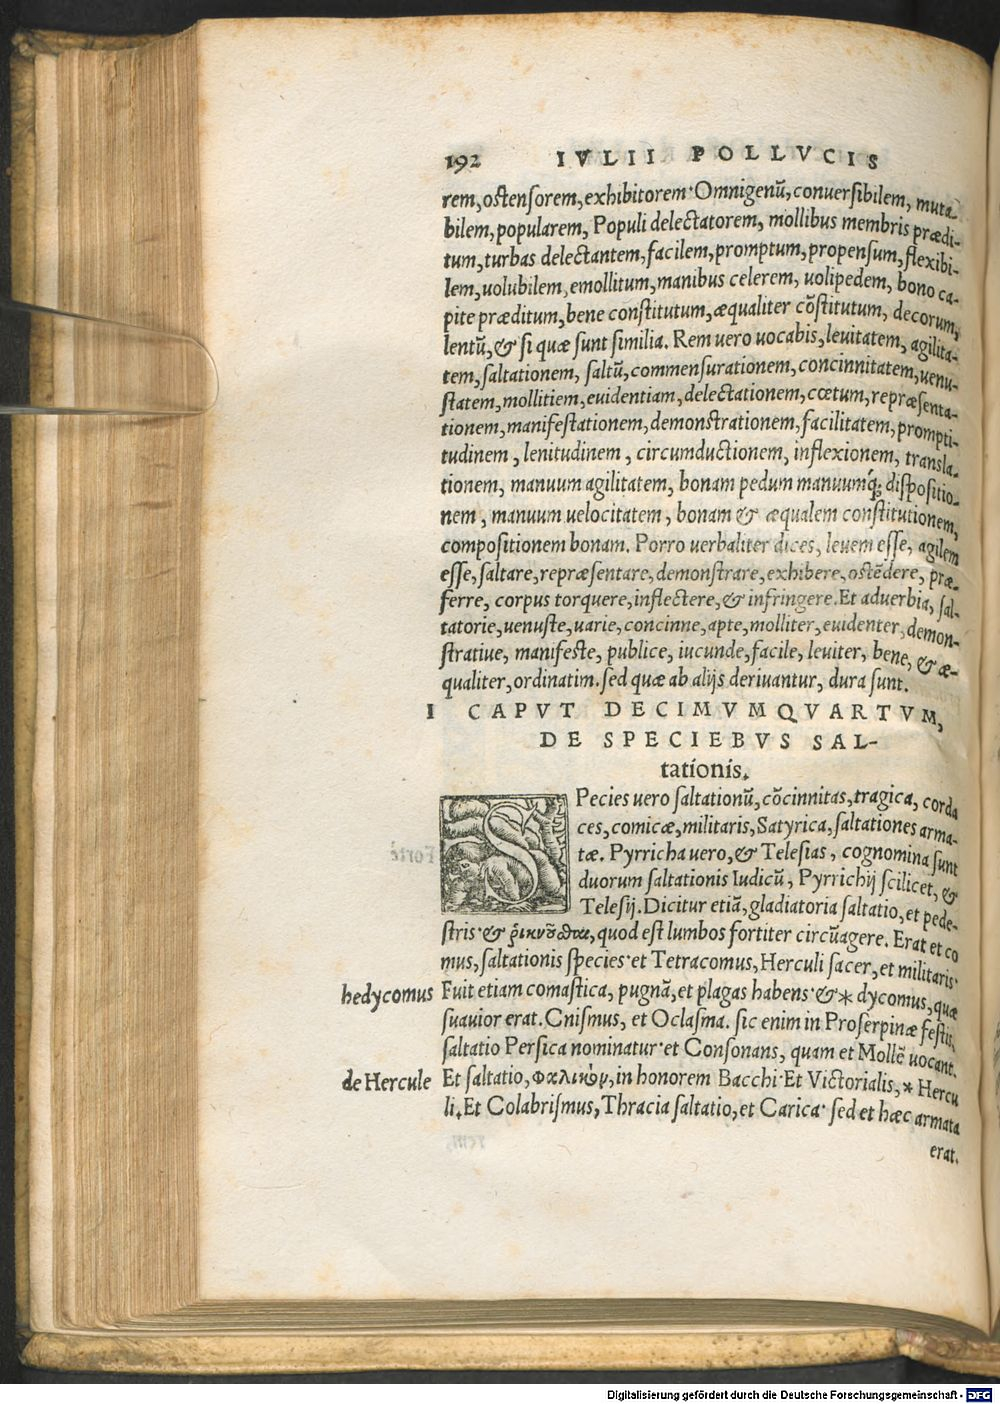 192 IVLII POLLVCIS
rem, ostensorem, exhibitorem· Omnigenũ, conuersibilem, muta-
bilem, popularem, Populi delectatorem, mollibus membris prædi-
tum, turbas delectantem, facilem, promptum, propensum, flexibi-
lem, uolubilem, emollitum, manibus celerem, uolipedem, bono ca-
pite præditum, bene constitutum, æqualiter cõstitutum, decorum,
lentũ, & si quæ sunt similia. Rem uero uocabis, leuitatem, agilita-
tem, saltationem, saltũ, commensurationem, concinnitatem, uenu-
statem, mollitiem, euidentiam, delectationem, cœtum, repræsenta-
tionem, manifestationem, demonstrationem, facilitatem, prompti-
tudinem, lenitudinem, circumductionem, inflexionem, transla-
tionem, manuum agilitatem, bonam pedum manuumq́; dispositio-
nem, manuum uelocitatem, bonam & æqualem constitutionem,
compositionem bonam. Porro uerbaliter dices, leuem esse, agilem
esse, saltare, repræsentare, demonstrare, exhibere, ostẽdere, præ-
ferre, corpus torquere, inflectere, & infringere. Et aduerbia, sal-
tatorie, uenuste, uarie, concinne, apte, molliter, euidenter, demon-
stratiue, manifeste, publice, iucunde, facile, leuiter, bene, & æ-
qualiter, ordinatim. sed quæ ab alijs deriuantur, dura sunt.
I CAPVT DECIMVMQVARTVM,
DE SPECIEBVS SAL-
tationis.
SPecies uero saltationũ, cõcinnitas, tragica, corda
ces, comicæ, militaris, Satyrica, saltationes arma-
tæ. Pyrricha uero, & Telesias, cognomina sunt
duorum saltationis Iudicũ, Pyrrichij scilicet, &
Telesij. Dicitur etiã, gladiatoria saltatio, et pede-
stris· & ῥικνοῦσθαι, quod est lumbos fortiter circũagere. Erat et co
mus, saltationis species· et Tetracomus, Herculi sacer, et militaris·
hedycomus Fuit etiam comastica, pugnã, et plagas habens· & * dycomus, quæ
suauior erat. Cnismus, et Oclasma. sic enim in Proserpinæ festis,
saltatio Persica nominatur· et Consonans, quam et Mollẽ uocant.
de Hercule Et saltatio, Φαλικὸν, in honorem Bacchi· Et Victorialis, * Hercu
li. Et Colabrismus, Thracia saltatio, et Carica· sed et hæc armata
erat.
Digitalisierung gefördert durch die Deutsche Forschungsgemeinschaft - DFG